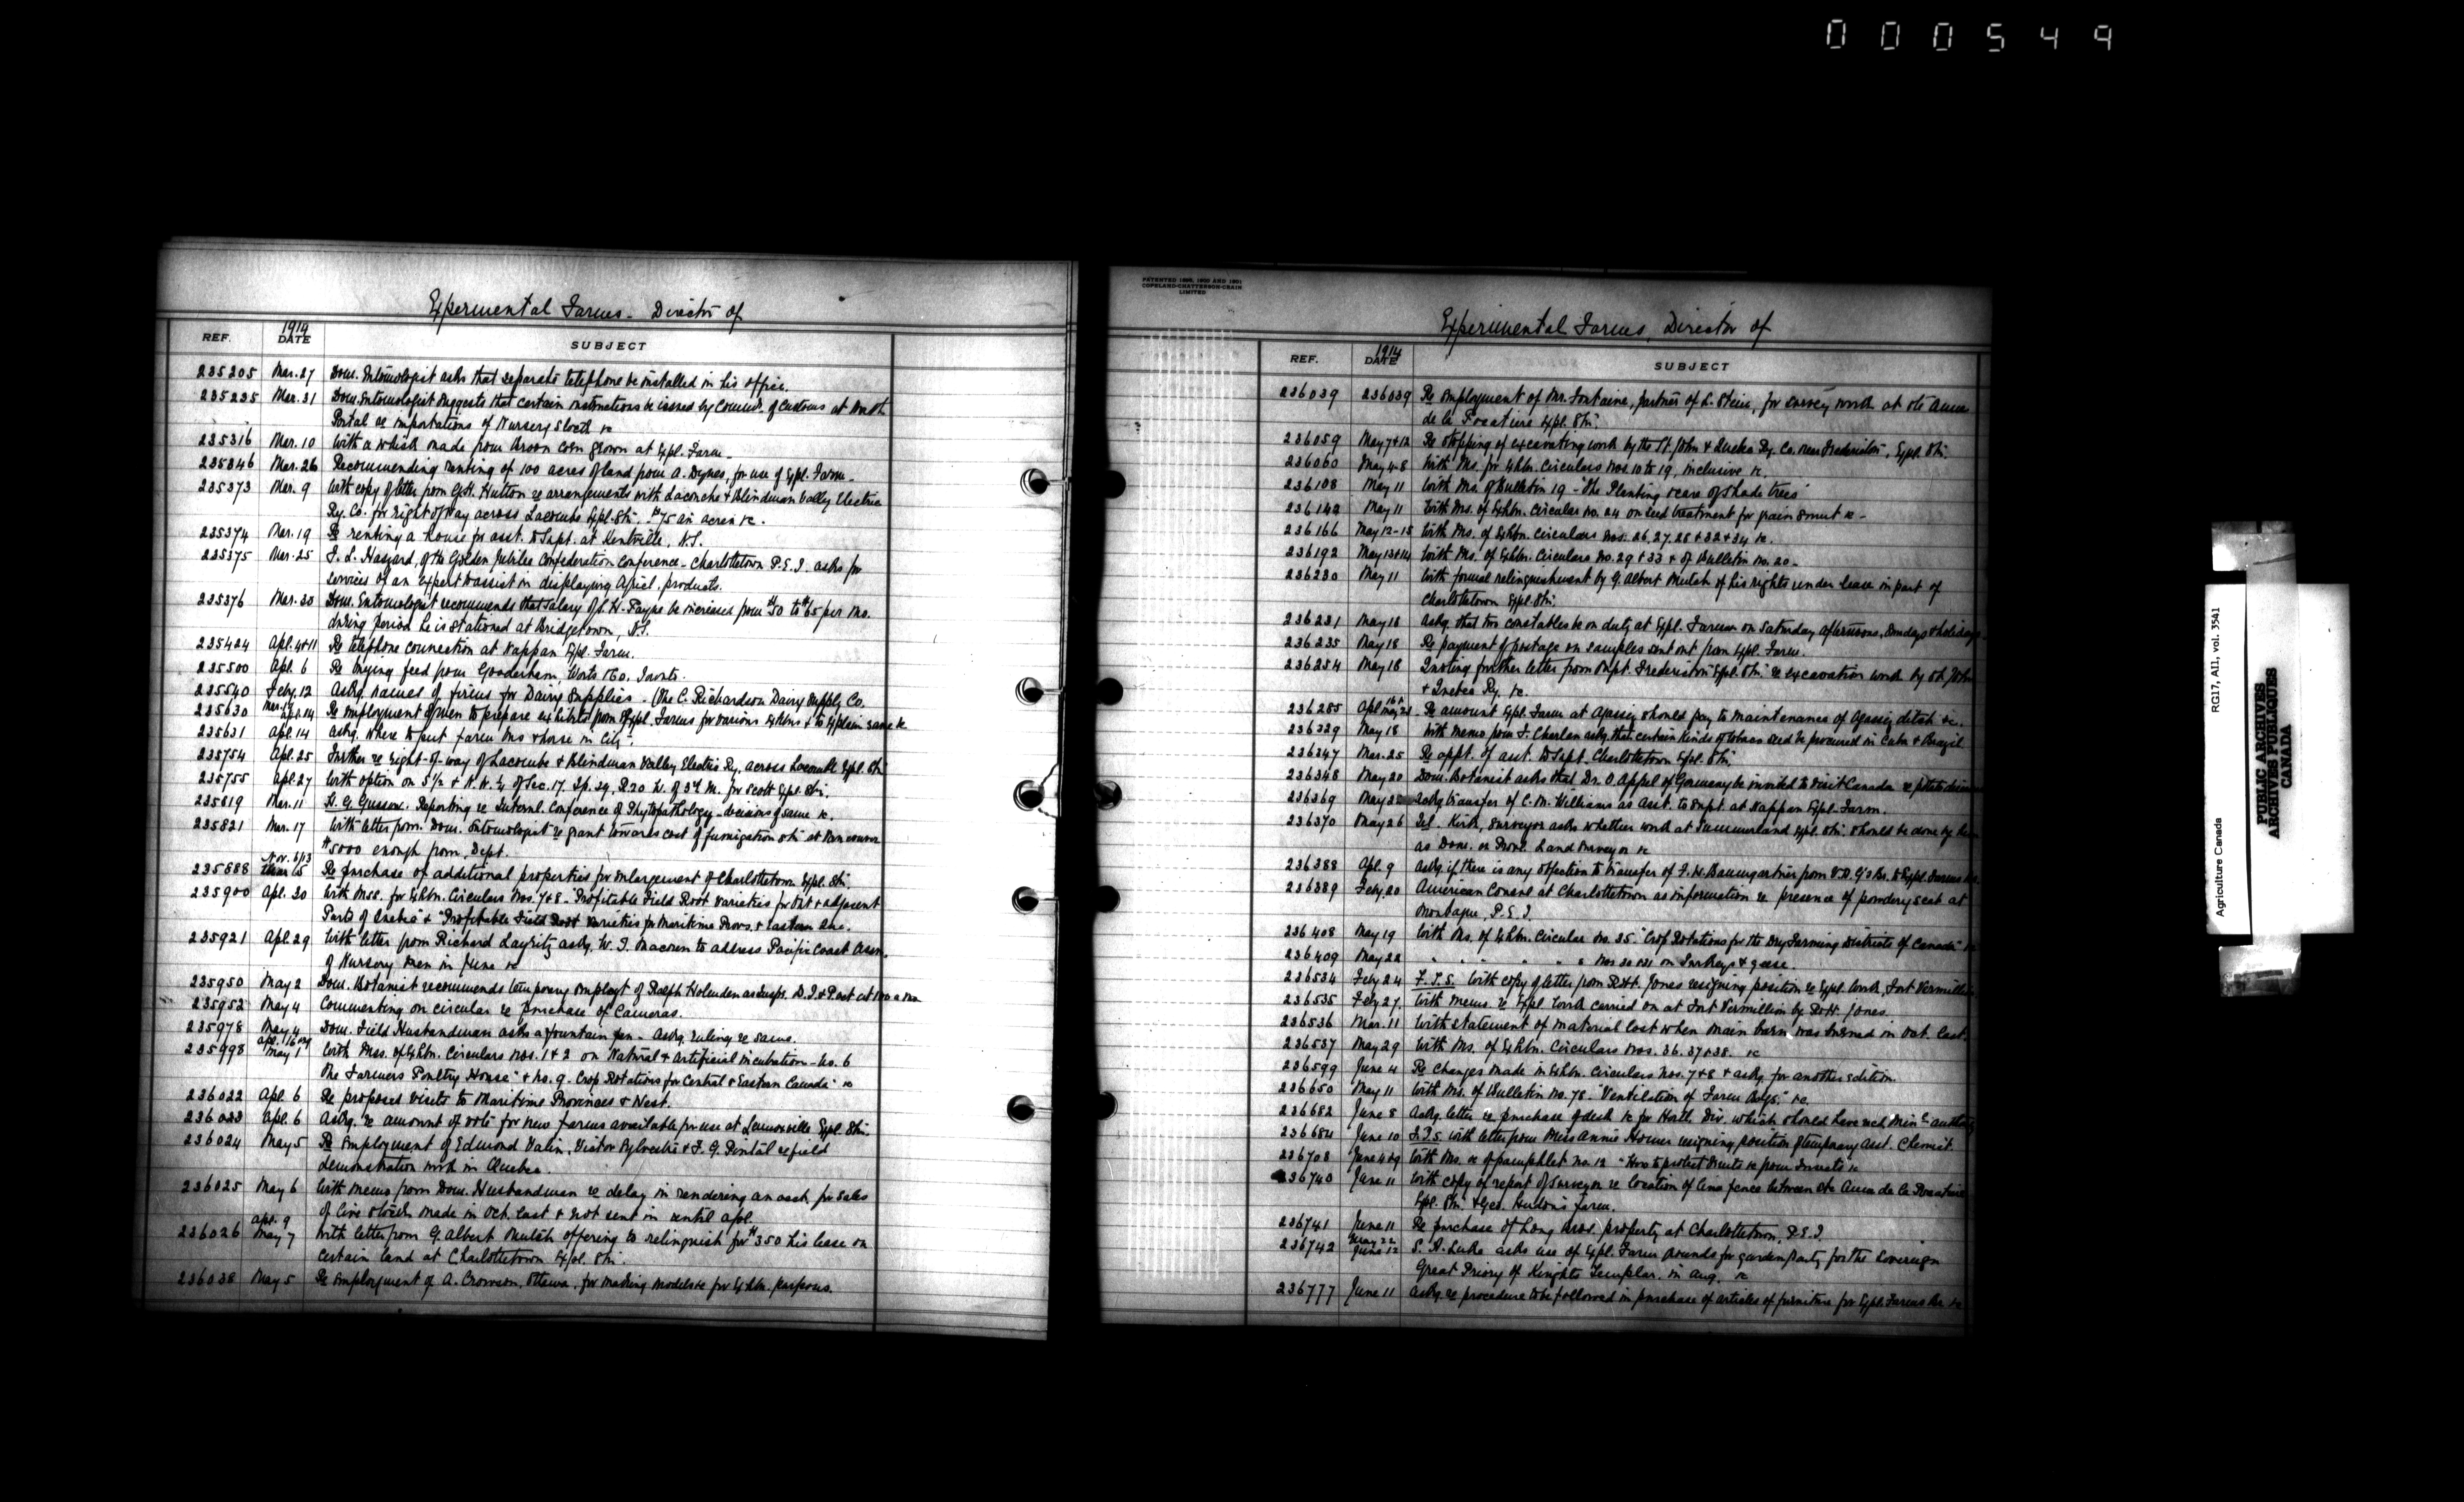 000549
Experimental Farms - Director of
REF. 1914 DATE SUBJECT
235205 Mar. 27 Dom. Entomologist asks that separate telephone be installed in his office.
235235 Mar. 31 Dom. Entomologist suggests that certain instructions be issued by Commr. of Customs at North
Portal re importations of Nursery Stock &c
235316 Mar. 10 With a whisk made from broom corn grown at Expl. Farm -
235346 Mar. 26 Recommending renting of 100 acres of land from A. Dynes, for use of Expl. Farm -
235373 Mar. 9 With copy of letter from G.H. Hutton re arrangements with Lacombe & Blindman Valley Electric
Ry. Co. for right of way across Lacombe Expl. Stn. $75 an acre &c.
235374 Mar. 19 Re renting a house for asst. to Supt. at Kentville, N.S.
235375 Mar. 25 F. L. Haszard, of the Golden Jubilee Confederation Conference - Charlottetown P.E.I. asks for
services of an expert to assist in displaying Agricl. products.
235376 Mar. 30 Dom. Entomologist recommends that salary of H. Payne be increased from $50 to $65 per mo.
during period he is stationed at Bridgetown, N.S.
235424 Apl. 4 & 11 Re telephone connection at Nappan Expl. Farm.
235500 Apl. 6 Re buying feed from Gooderham, Worts & Co. Toronto.
235540 Feby. 12 Askg. names of firms for Dairy Supplies. (The C. Richardson Dairy Supply Co.
235630 Mar. 17 Apl. 14 Re employment of men to prepare exhibits from Expl. Farms for various Exhbns & to explain same &c
235631 Apl. 14 Askg. where to put Farm bus & horse in City.
235754 Apl. 25 Further re right-of-way of Lacombe & Blindman Valley Electric Ry. across Lacombe Expl. Stn
235755 Apl. 27 With option on S½ & N.W. ¼ of Sec. 17. Tp. 39, R 20 W. of 3rd M. for Scott Expl. Stn.
235819 Mar. 11 H. G. Gussow. Reporting re Internl. Conference of Phytopathology - decisions of same &c.
235821 Mar. 17 With letter from Dom. Entomologist re grant towards cost of fumigation stn at Vancouver
$5000 enough from Dept.
235888 Nov. 5/13 Mar 15 Re purchase of additional properties for enlargement of Charlottetown Expl. Stn.
235900 Apl. 30 With Mss. for Exhbn. Circulars Nos. 7 & 8 - "Profitable Field Root Varieties for Ont & adjacent
Parts of Quebec" & "Profitable Field Root Varieties for Maritime Provs. & Eastern Que.
235921 Apl. 29 With letter from Richard Layritz askg. W. T. Macoun to address Pacific Coast Assn.
of Nursery Men in June &c
235950 May 2 Dom. Botanist recommends temporary employt of Ralph Holmden as Inspr. D.I. & Pest at $100 a mo
235952 May 4 Commenting on circular re purchase of Cameras.
235978 May 4 Dom. Field Husbandman asks a fountain pen - askg. ruling re same.
235998 Apl. 16 & 24 May 1 With Mss. of Exhbn. Circulars Nos. 1 & 2 on Natural & Artificial Incubation - No. 6
"The Farmers Poultry House" & No. 9. Crop Rotations for Central & Eastern Canada" &c
236022 Apl. 6 Re proposed visits to Maritime Provinces & West.
236023 Apl. 6 Askg. re amount of vote for new farms available for use at Lennoxville Expl. Stn.
236024 May 5 Re employment of Edmond Valin, Victor Sylvestre & J. G. Pintal re field
demonstration work in Quebec.
236025 May 6 With memo from Dom. Husbandman re delay in rendering an acct. for sales
of live stock made in Oct. last & not sent in until Apl.
236026 Apl. 9 May 7 With letter from G. Albert Mutch offering to relinquish for $350 his lease on
certain land at Charlottetown Expl. Stn.
236038 May 5 Re employment of A. Crowson, Ottawa, for making models &c for Exhbn. purposes.
PATENTED 1896, 1900 AND 1901
COPELAND-CHATTERSON-CRAIN
LIMITED
Experimental Farms, Director of
REF. 1914 DATE SUBJECT
236039 236039 Re employment of Mr. Fontaine, partner of L. Stein, for survey work at Ste Anne
de la Pocatiere Expl. Stn.
236059 May 7 & 12 Re stopping of excavating work by the St. John & Quebec Ry. Co. near Fredericton, Expl. Stn.
236060 May 4-8 With Ms. for Exhbn. Circulars Nos. 10 to 19, inclusive &c.
236108 May 11 With Ms. of Bulletin 19 - "The Planting & care of Shade trees"
236142 May 11 With Ms. of Exhbn. Circular No. 24 on seed treatment for grain smut &c -
236166 May 12-15 With Ms. of Exhbn. Circulars Nos. 26, 27, 28 & 32 & 34 &c.
236192 May 13 & 14 With Ms. of Exhbn. Circulars No. 29 & 33 & of Bulletin No. 20 -
236230 May 11 With formal relinquishment by G. Albert Mutch of his rights under lease in part of
Charlottetown Expl. Stn.
236231 May 18 Askg. that two constables be on duty at Expl. Farm on Saturday afternoons, Sundays & holidays
236235 May 18 Re payment of postage on samples sent out from Expl. Farm.
236254 May 18 Quoting further letter from Supt. Fredericton Expl. Stn. re excavation work by St. John
& Quebec Ry. &c.
236285 Apl 16 May 21 Re amount Expl. Farm at Agassiz should pay to maintenance of Agassiz ditch &c.
236329 May 18 With memo from F. Charlan askg. that certain kinds of tobacco seed be procured in Cuba & Brazil
236347 Mar. 25 Re appt. of asst. to Supt. Charlottetown Expl. Stn.
236348 May 20 Dom. Botanist asks that Dr. O. Appel of Germany be invited to visit Canada re potato
236369 May Askg transfer of C. M. Williams as Asst. to Supt. at Nappan Expl. Farm.
236370 May 26 Tel. Kirk, Surveyor asks whether work at Summerland Expl. Stn. should be done by him
as Dom. or Provl. Land Surveyor &c
236388 Apl. 9 Askg. if there is any objection to transfer of F. H. Baumgartner from V.D.G's Br. to Expl. Farms
236389 Feby. 20 American Consul at Charlottetown as information re presence of powdery scab at
Montague, P.E.I.
236408 May 19 With Ms. of Exhbn. Circular No. 35. "Crop Rotations for the Dry Farming Districts of Canada"
236409 May 22 " " " " " Nos 30 & 31 on Turkeys & geese.
236534 Feby 24 F.T.S. With copy of letter from R.H. Jones resigning position re Expl. Work, Fort Vermilion
236535 Feby 27 With memo re Expl. Work carried on at Fort Vermilion by R.H. Jones.
236536 Mar. 11 With statement of material lost when main barn was burned in Oct. last.
236537 May 29 With Ms. of Exhbn. Circulars Nos. 36. 37 & 38. &c
236599 June 4 Re changes made in Exhbn. Circulars Nos. 7 & 8 & askg. for another edition.
236650 May 11 With Ms. of Bulletin No. 78 "Ventilation of Farm Bldgs." &c.
236682 June 8 Askg. letter re purchase of desk &c for Hortl. Div. which should have recd. Min's authority
236684 June 10 F.T.S. with letter from Miss Annie Homer resigning position of temporary Asst. Chemist.
236708 June 4 & 9 With Ms. &c of pamphlet No. 12 "How to protect Fruits &c from Insects &c
236740 June 11 With copy of report of Surveyor re location of line fence between Ste Anne de la Pocatiere
Expl. Stn. & Geo. Hudon's farm.
236741 June 11 Re purchase of Long Bros. property at Charlottetown, P.E.I.
236742 May 22 June 12 S. A. Luke asks use of Expl. Farm Grounds for garden party for the Sovereign
Great Priory of Knights Templar. in Aug. &c
236777 June 11 Askg. re procedure to be followed in purchase of articles of furniture for Expl. Farms Br. &c
Agriculture Canada
RG17, AII, vol. 3541
PUBLIC ARCHIVES
ARCHIVES PUBLIQUES
CANADA